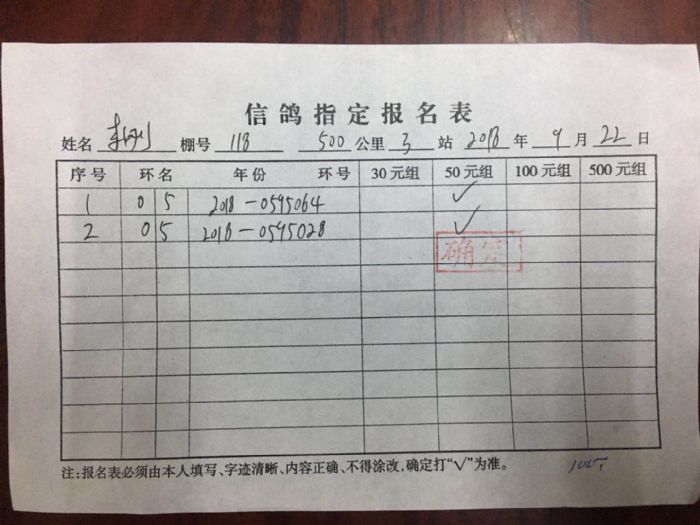 信鸽指定报名表
姓名 李刚 棚号 118 500 公里 3 站 2018 年 9 月 22 日
序号 环名 年份 环号 30元组 50元组 100元组 500元组
1 0 5 2018-0595064 √
2 0 5 2018-0595028 √
确定
注:报名表必须由本人填写、字迹清晰、内容正确、不得涂改,确定打“√”为准。